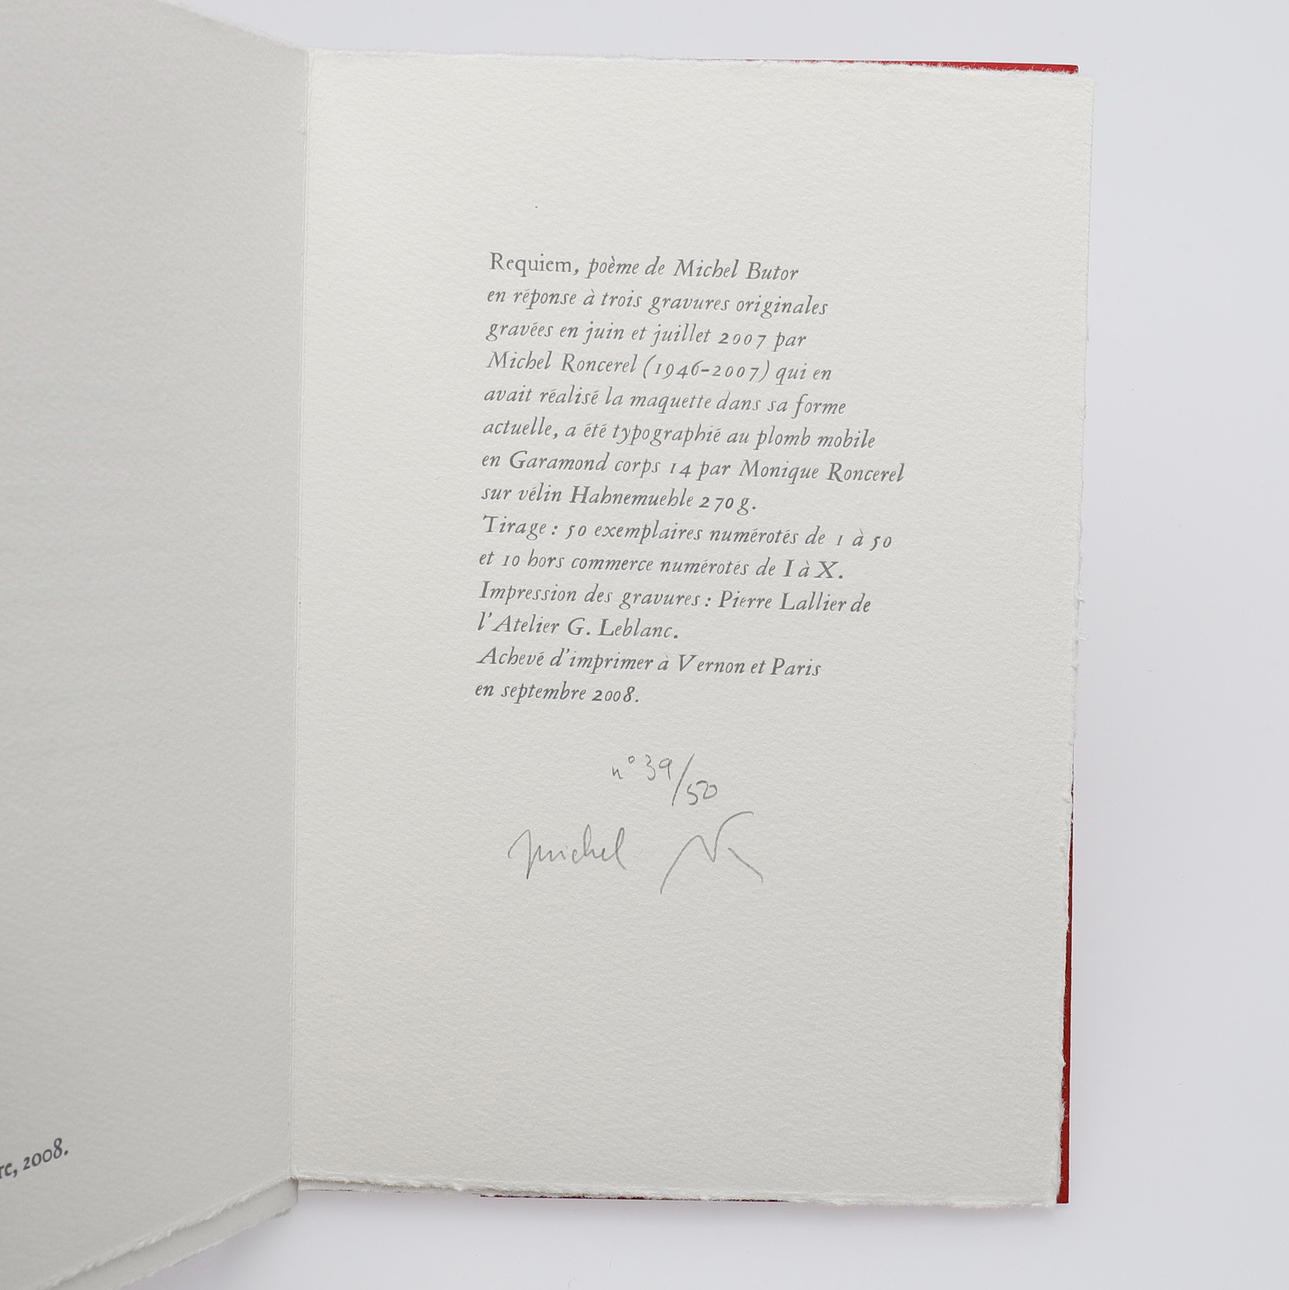 re, 2008.
Requiem, poème de Michel Butor
en réponse à trois gravures originales
gravées en juin et juillet 2007 par
Michel Roncerel (1946-2007) qui en
avait réalisé la maquette dans sa forme
actuelle, a été typographié au plomb mobile
en Garamond corps 14 par Monique Roncerel
sur vélin Hahnemuehle 270 g.
Tirage : 50 exemplaires numérotés de 1 à 50
et 10 hors commerce numérotés de I à X.
Impression des gravures : Pierre Lallier de
l'Atelier G. Leblanc.
Achevé d'imprimer à Vernon et Paris
en septembre 2008.
n° 39/50
michel